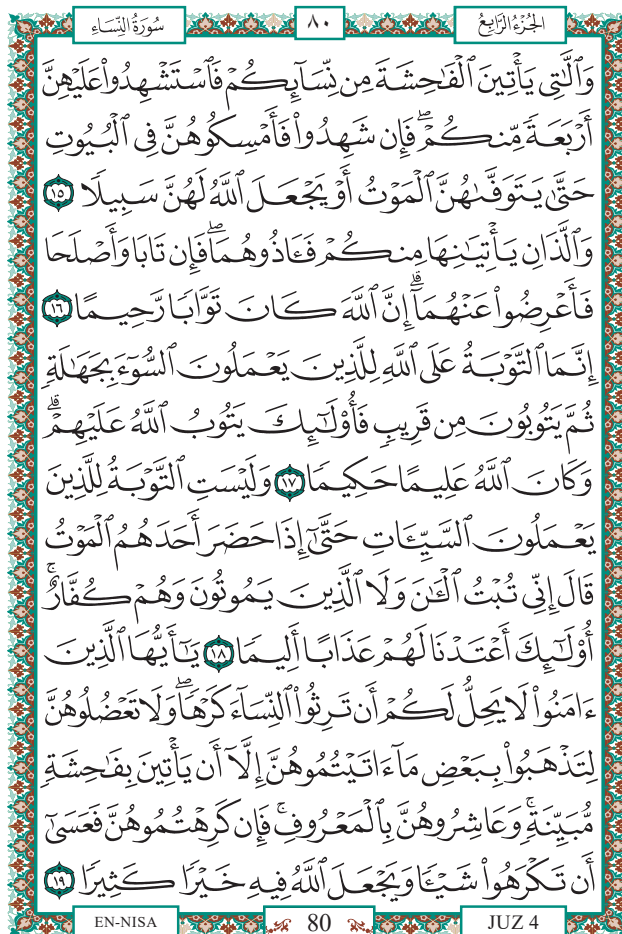 الجُزْءُ الرَّابِعُ ٨٠ سُورَةُ النِّسَاءِ
وَٱلَّٰتِي يَأْتِينَ ٱلْفَٰحِشَةَ مِن نِّسَآئِكُمْ فَٱسْتَشْهِدُوا۟ عَلَيْهِنَّ
أَرْبَعَةً مِّنكُمْ ۖ فَإِن شَهِدُوا۟ فَأَمْسِكُوهُنَّ فِي ٱلْبُيُوتِ
حَتَّىٰ يَتَوَفَّىٰهُنَّ ٱلْمَوْتُ أَوْ يَجْعَلَ ٱللَّهُ لَهُنَّ سَبِيلًا ١٥
وَٱلَّذَانِ يَأْتِيَٰنِهَا مِنكُمْ فَـَٔاذُوهُمَا ۖ فَإِن تَابَا وَأَصْلَحَا
فَأَعْرِضُوا۟ عَنْهُمَآ ۗ إِنَّ ٱللَّهَ كَانَ تَوَّابًا رَّحِيمًا ١٦
إِنَّمَا ٱلتَّوْبَةُ عَلَى ٱللَّهِ لِلَّذِينَ يَعْمَلُونَ ٱلسُّوٓءَ بِجَهَٰلَةٍ
ثُمَّ يَتُوبُونَ مِن قَرِيبٍ فَأُو۟لَٰٓئِكَ يَتُوبُ ٱللَّهُ عَلَيْهِمْ ۗ
وَكَانَ ٱللَّهُ عَلِيمًا حَكِيمًا ١٧ وَلَيْسَتِ ٱلتَّوْبَةُ لِلَّذِينَ
يَعْمَلُونَ ٱلسَّيِّـَٔاتِ حَتَّىٰٓ إِذَا حَضَرَ أَحَدَهُمُ ٱلْمَوْتُ
قَالَ إِنِّي تُبْتُ ٱلْـَٰٔنَ وَلَا ٱلَّذِينَ يَمُوتُونَ وَهُمْ كُفَّارٌ ۚ
أُو۟لَٰٓئِكَ أَعْتَدْنَا لَهُمْ عَذَابًا أَلِيمًا ١٨ يَٰٓأَيُّهَا ٱلَّذِينَ
ءَامَنُوا۟ لَا يَحِلُّ لَكُمْ أَن تَرِثُوا۟ ٱلنِّسَآءَ كَرْهًا ۖ وَلَا تَعْضُلُوهُنَّ
لِتَذْهَبُوا۟ بِبَعْضِ مَآ ءَاتَيْتُمُوهُنَّ إِلَّآ أَن يَأْتِينَ بِفَٰحِشَةٍ
مُّبَيِّنَةٍ ۚ وَعَاشِرُوهُنَّ بِٱلْمَعْرُوفِ ۚ فَإِن كَرِهْتُمُوهُنَّ فَعَسَىٰٓ
أَن تَكْرَهُوا۟ شَيْـًٔا وَيَجْعَلَ ٱللَّهُ فِيهِ خَيْرًا كَثِيرًا ١٩
EN-NISA 80 JUZ 4